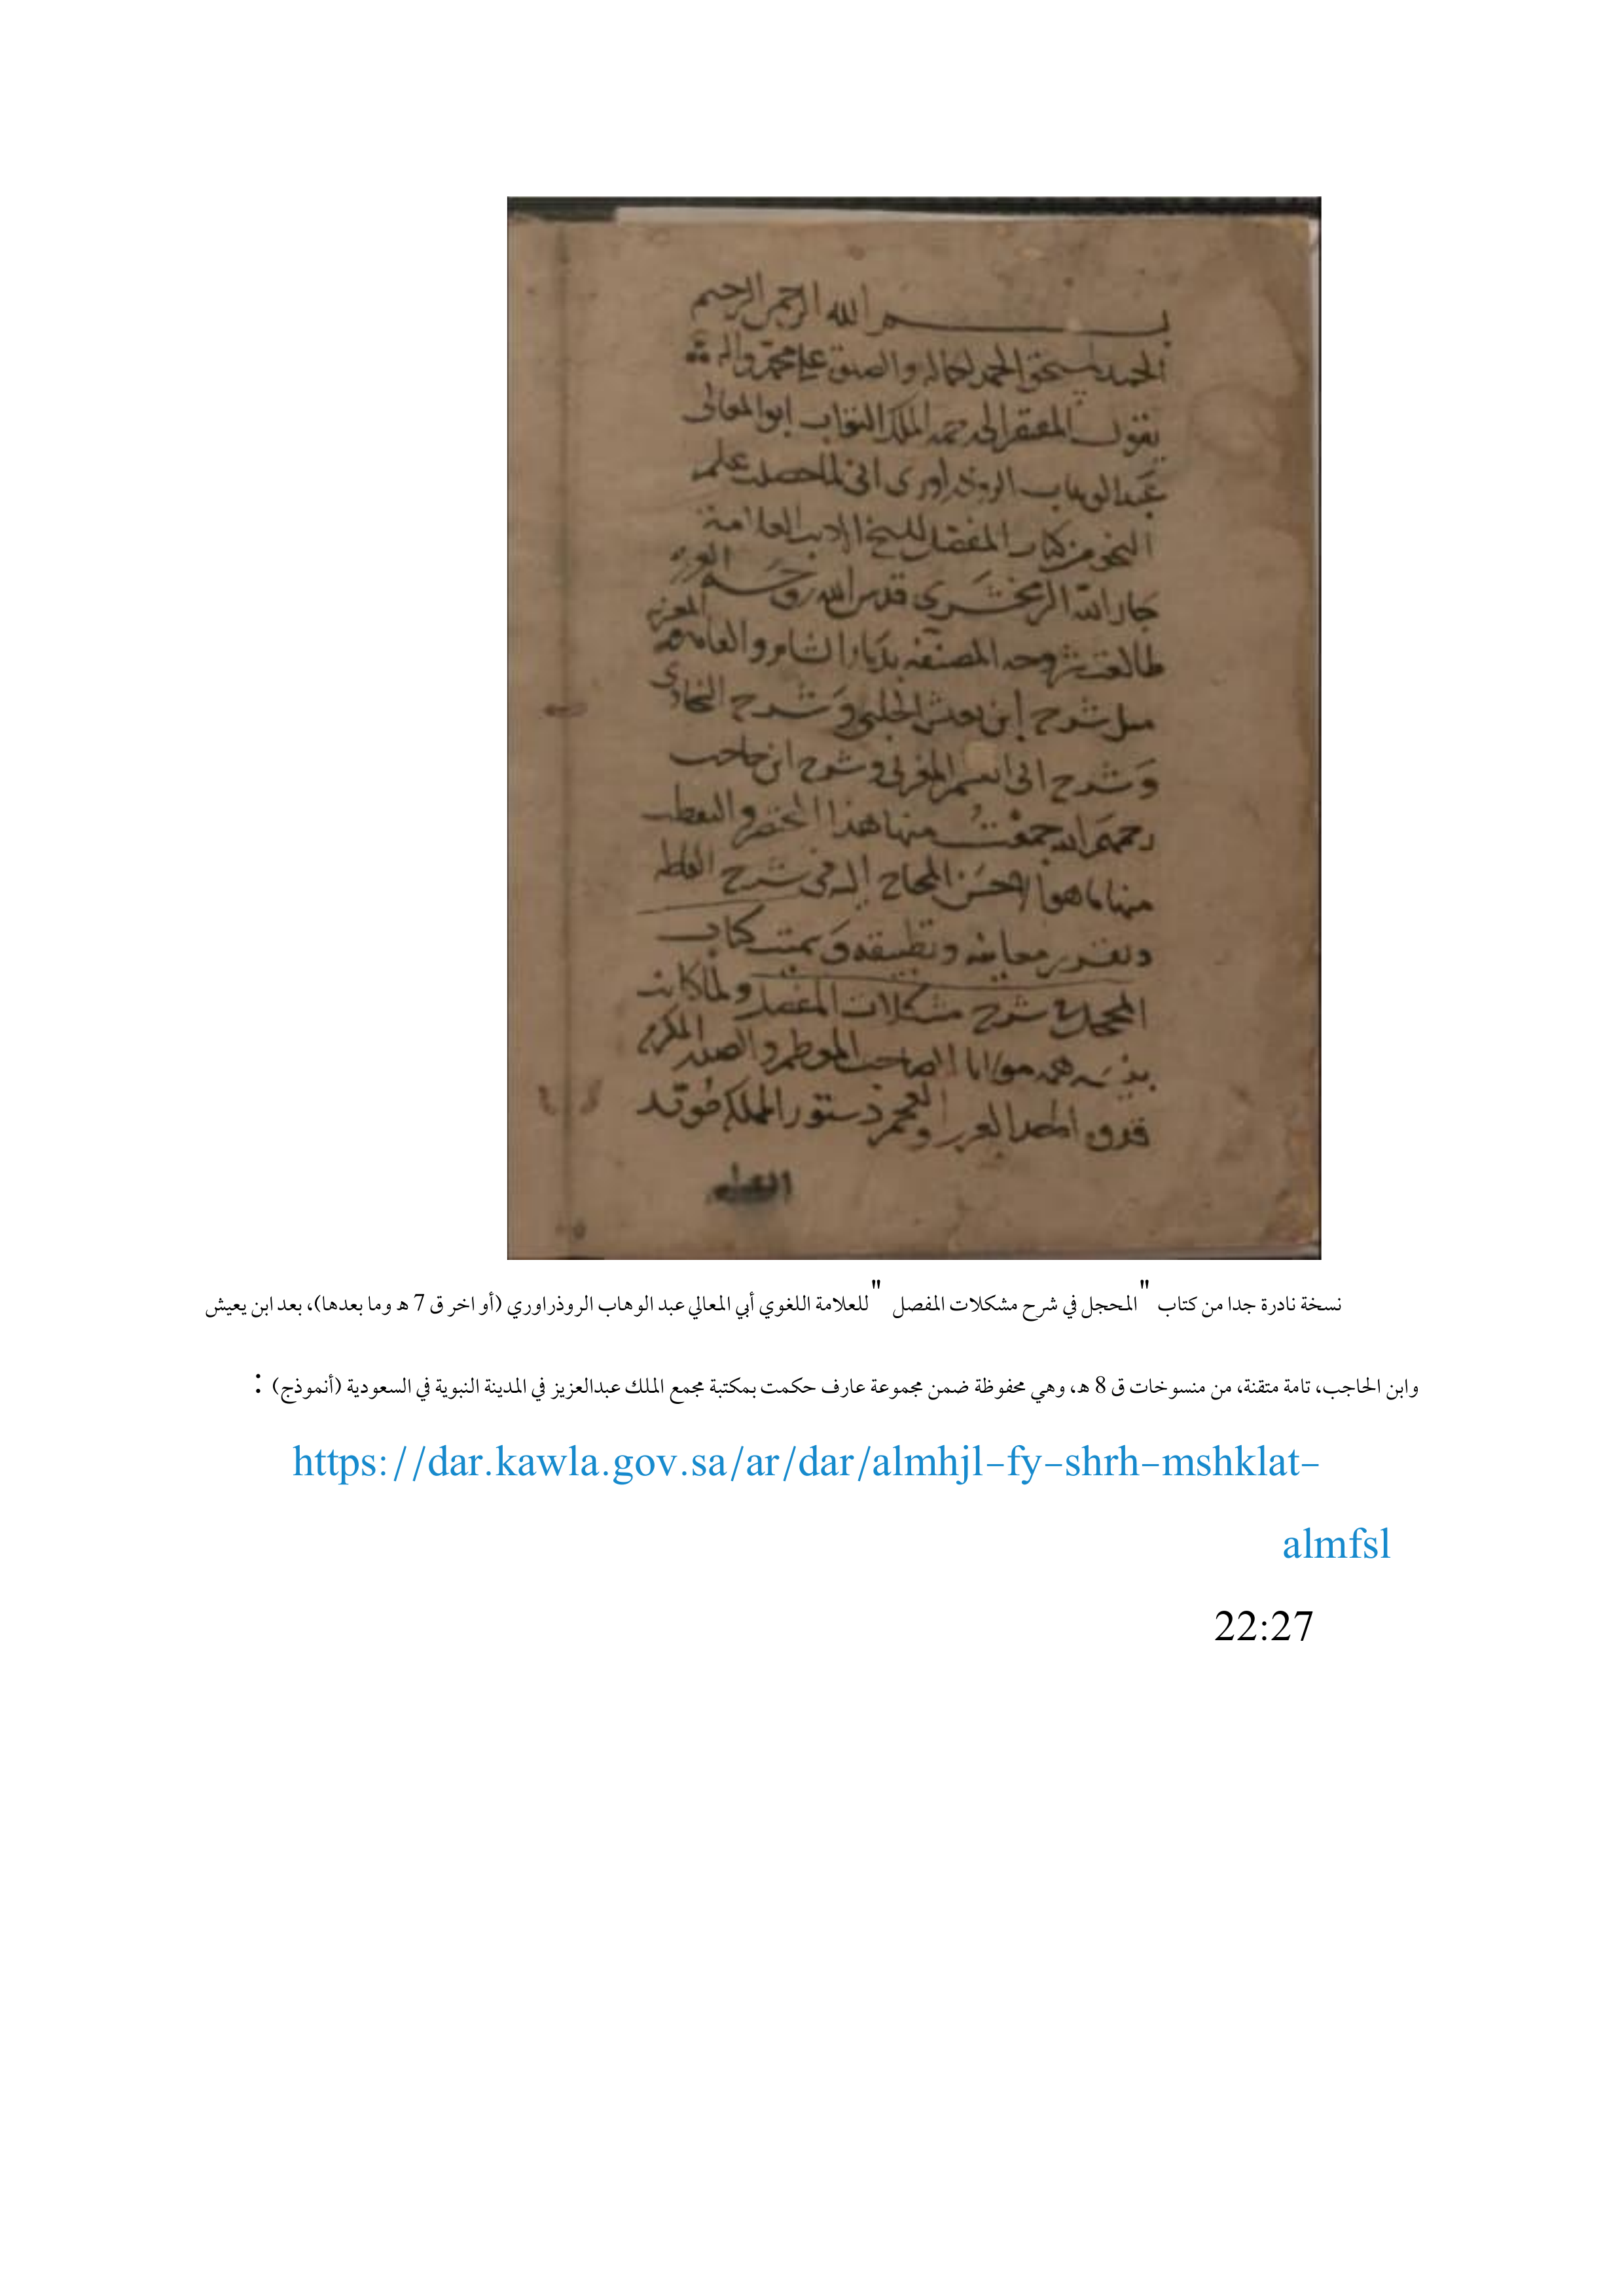 بسم الله الرحمن الرحيم
الحمد لمستحق الحمد لكماله والصلوة على محمد وآله
يقول المفتقر الى رحمة الملك التواب ابو المعالى
عبد الوهاب الروذراورى انى لما حصلت علم
النحو من كتاب المفصل للشيخ الاديب العلامة
جار الله الزمخشري قدس الله روحه العزيز
طالعت شروحه المصنفة بديار الشام والعامه
مثل شرح ابن يعيش الحلبي وشرح السخاوى
وشرح ابى القسم المغربى وشرح ابن حاجب
رحمهم الله جمعت منها هذا المختصر والتقطت
منها ما هو الاحسن المحتاج اليه فى شرح الفاظه
وتقرير معانيه وتطبيقه وسميته كتاب
المحجل فى شرح مشكلات المفصل ولما كانت
همه مولانا الصاحب المعظم والصدر المكرم
العرب والعجم دستور الممالك
نسخة نادرة جدا من كتاب "المحجل في شرح مشكلات المفصل "للعلامة اللغوي أبي المعالي عبد الوهاب الروذراوري (أو اخر ق 7 ه وما بعدها)، بعد ابن يعيش
وابن الحاجب، تامة متقنة، من منسوخات ق 8 ه، وهي محفوظة ضمن مجموعة عارف حكمت بمكتبة مجمع الملك عبدالعزيز في المدينة النبوية في السعودية (أنموذج) :
https://dar.kawla.gov.sa/ar/dar/almhjl-fy-shrh-mshklat-
almfsl
22:27